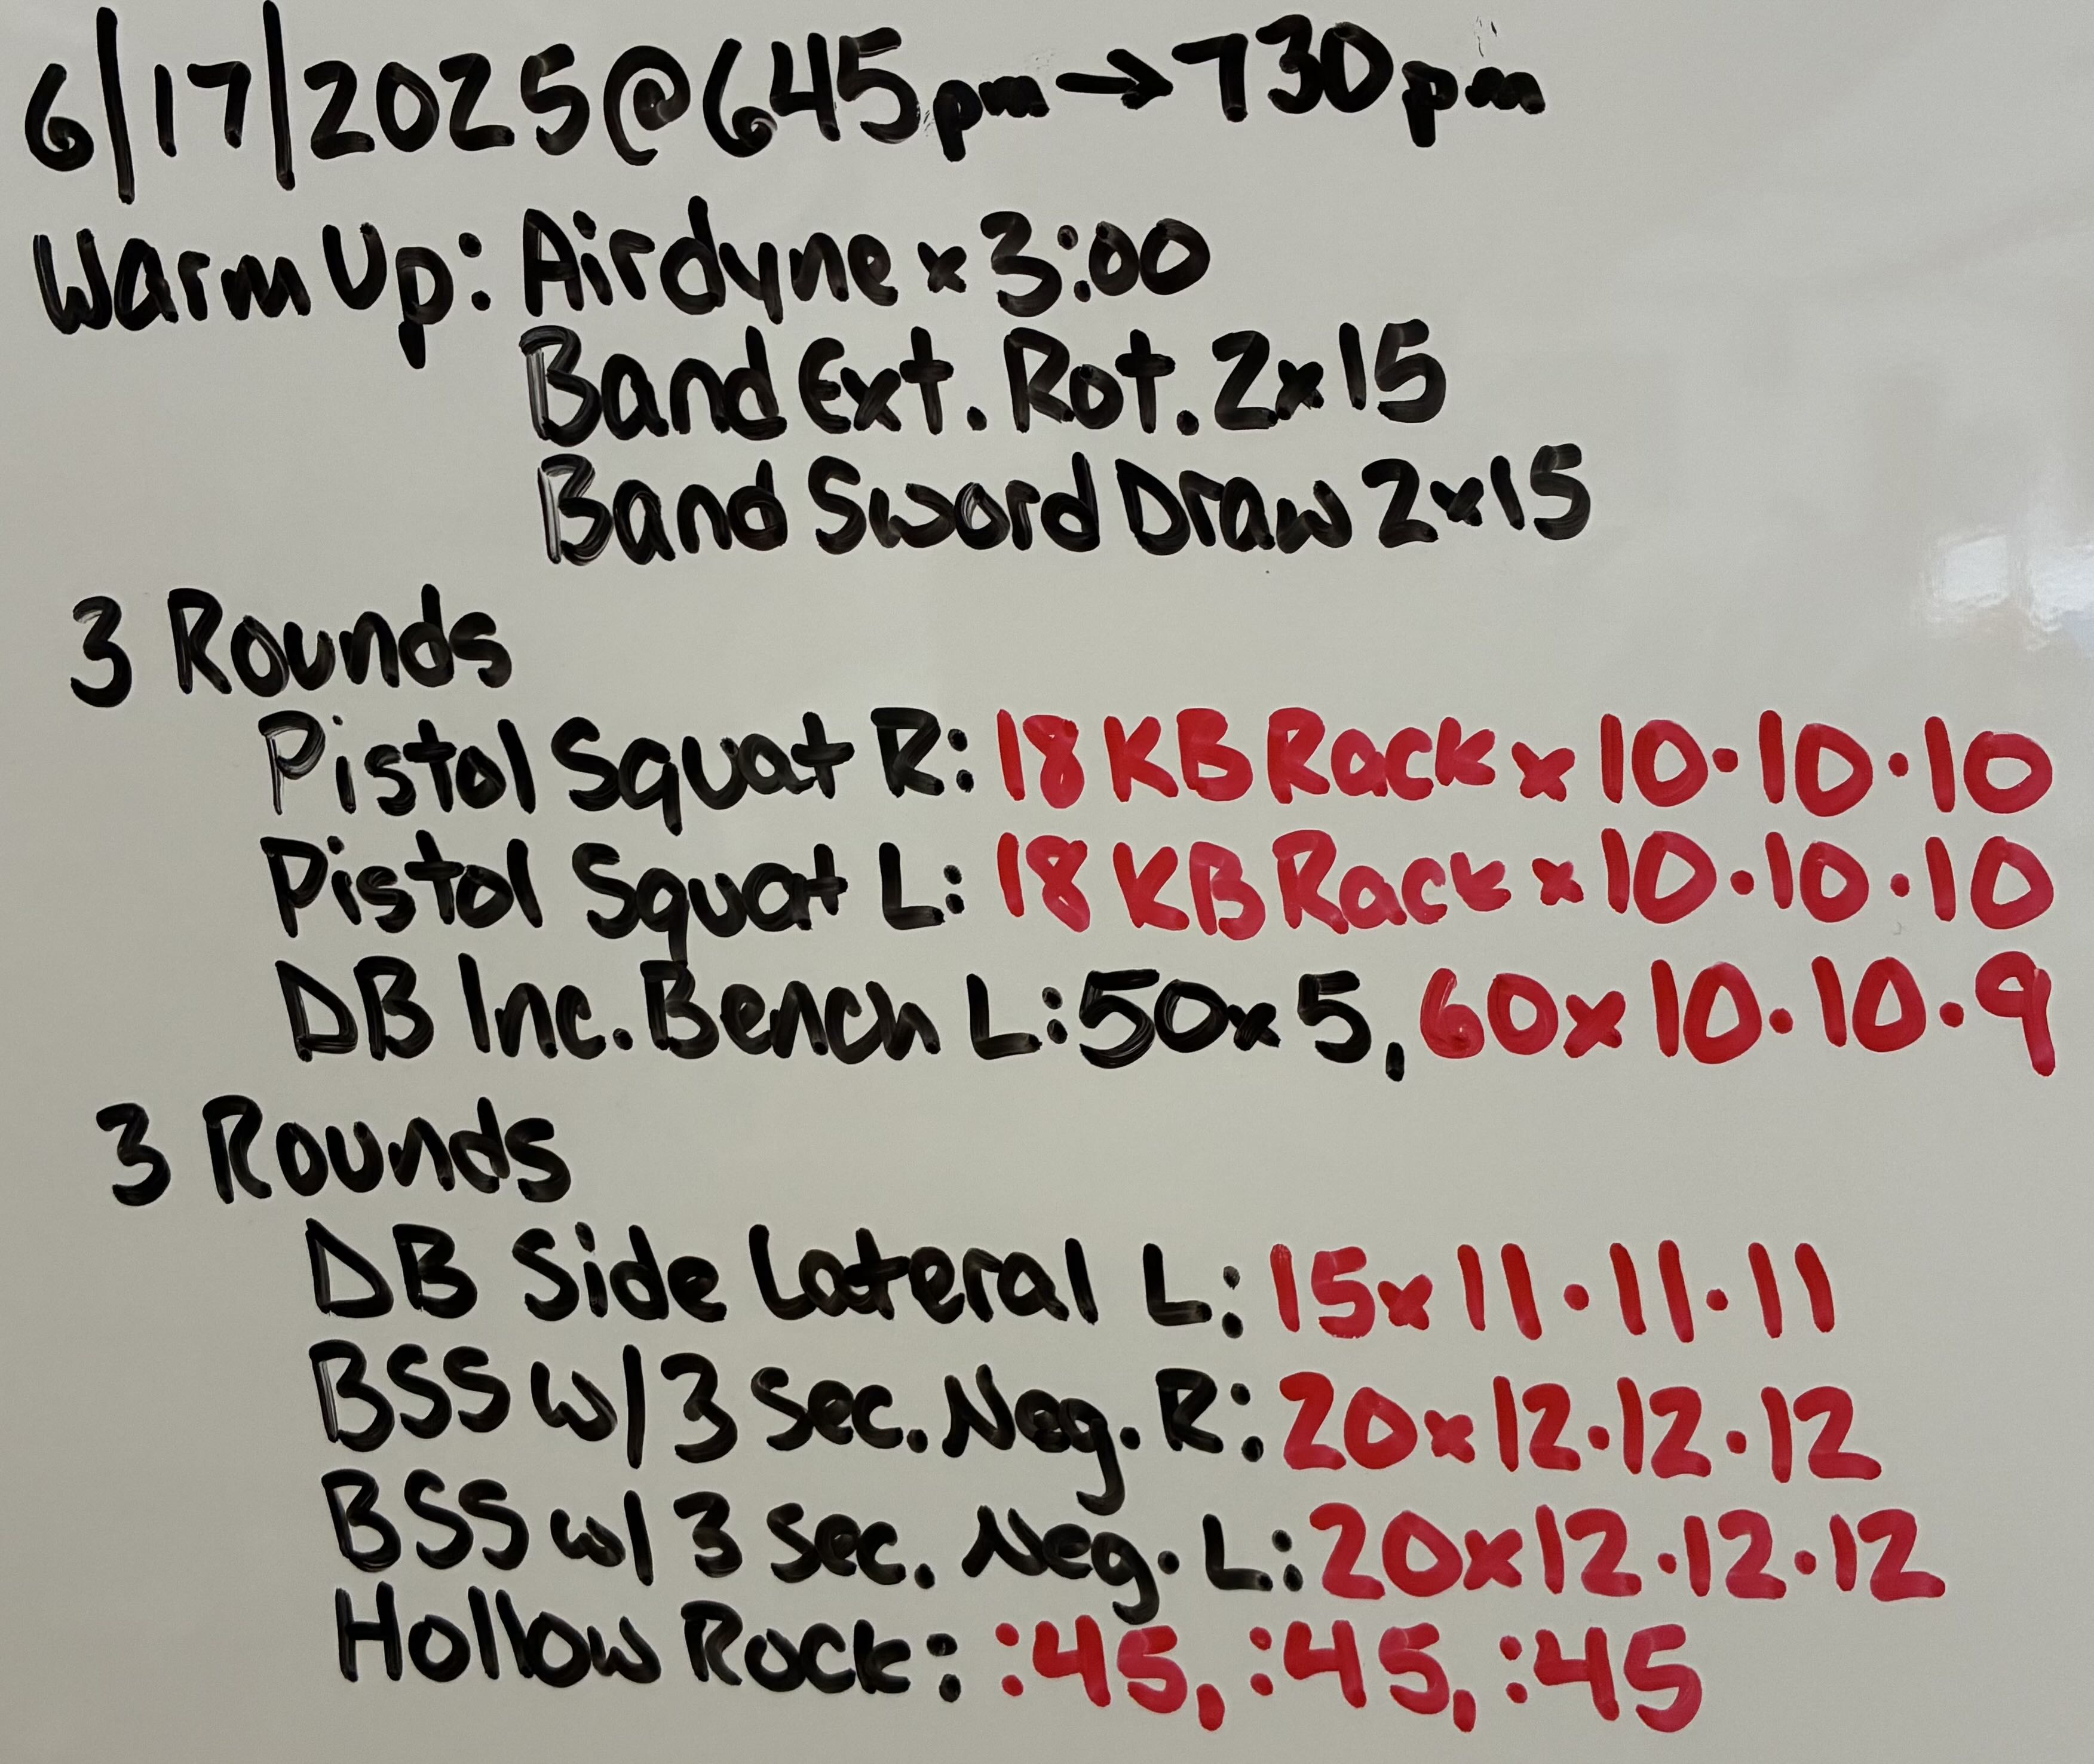 6/17/2025@645pm→730pm
Warm Up: Airdyne x 3:00
Band Ext. Rot. 2x15
Band Sword Draw 2x15
3 Rounds
Pistol Squat R: 18 KB Rack x 10·10·10
Pistol Squat L: 18 KB Rack x 10·10·10
DB Inc. Bench L: 50x5, 60x10·10·9
3 Rounds
DB Side Lateral L: 15x11·11·11
BSS w/ 3 Sec. Neg. R: 20x12·12·12
BSS w/ 3 Sec. Neg. L: 20x12·12·12
Hollow Rock: :45, :45, :45